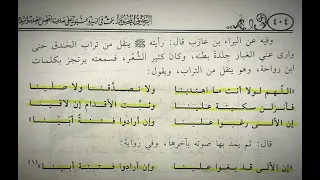 ٤٠٤
وفيه عن البراء بن عازب قال: رأيته ﷺ ينقل من تراب الخندق حتى
وارى عني الغبار جلدة بطنه، وكان كثير الشعر، فسمعته يرتجز بكلمات
ابن رواحة، وهو ينقل من التراب، ويقول:
اللهم لولا أنت ما اهتدينا ولا تصدقنا ولا صلينا
فأنزلن سكينة علينا وثبت الأقدام إن لاقينا
إن الألى رغبوا علينا وإن أرادوا فتنة أبينا
قال: ثم يمد بها صوته بآخرها، وفي رواية:
إن الألى قد بغوا علينا وإن أرادوا فتنة أبينا (١)